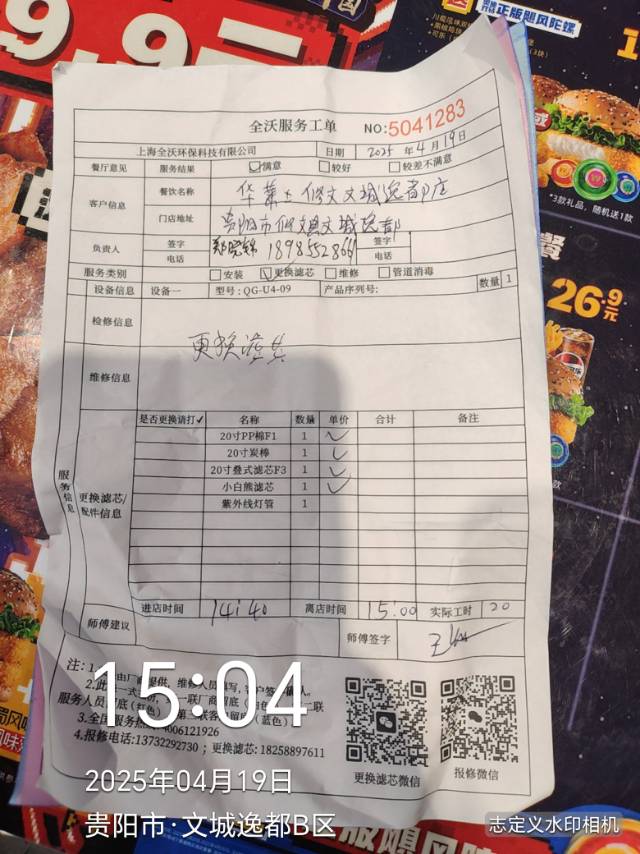 正版飓风陀螺
*3款礼品，随机送1款
26.9元
全沃服务工单
NO:5041283
上海全沃环保科技有限公司 日期 2025年4月19日
餐厅意见 服务结果 ☑满意 □较好 □较差不满意
客户信息 餐饮名称 华莱士修文文城逸都店
门店地址 贵阳市修文县文城逸都
负责人 签字 签字
电话 电话
服务类别 □安装 ☑更换滤芯 □维修 □管道消毒
设备信息 设备一 型号：QG-U4-09 产品序列号： 数量 1
检修信息
更换滤芯
维修信息
服务信息
更换滤芯/配件信息
是否更换请打✓ 名称 数量 单价 合计 备注
20寸PP棉F1 1 ✓
20寸炭棒 1 ✓
20寸叠式滤芯F3 1 ✓
小白熊滤芯 1 ✓
紫外线灯管 1
进店时间 14:40 离店时间 15:00 实际工时 20
师傅建议 师傅签字
注：1.
3.全国服务 4006121926
4.报修电话:13732292730；更换滤芯:18258897611
更换滤芯微信 报修微信
15:04
2025年04月19日
贵阳市·文城逸都B区
志定义水印相机